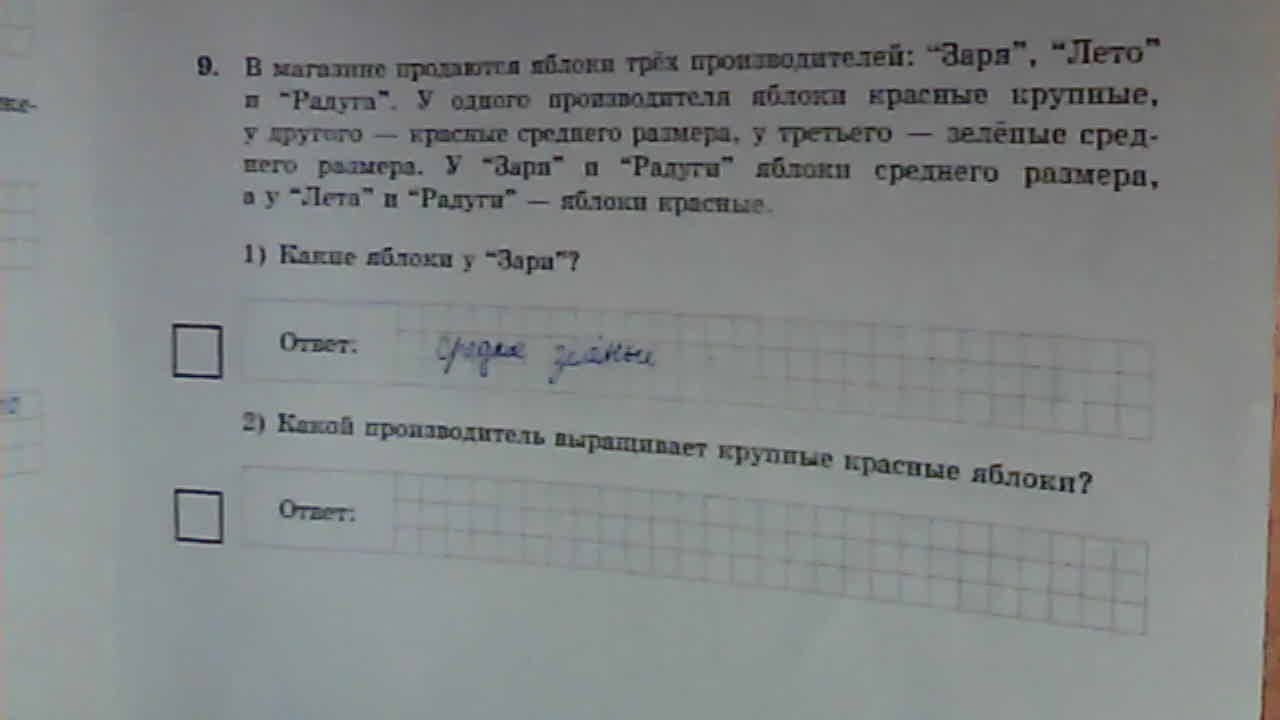 9. В магазине продаются яблоки трёх производителей: “Заря”, “Лето”
и “Радуга”. У одного производителя яблоки красные крупные,
у другого — красные среднего размера, у третьего — зелёные сред-
него размера. У “Зари” и “Радуги” яблоки среднего размера,
а у “Лета” и “Радуги” — яблоки красные.
1) Какие яблоки у “Зари”?
Ответ: зелёные
2) Какой производитель выращивает крупные красные яблоки?
Ответ: